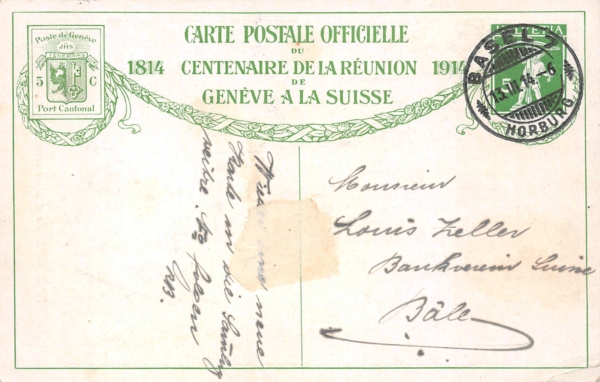 Poste de Genève
JHS
5 C
Port Cantonal
CARTE POSTALE OFFICIELLE
DU
1814 CENTENAIRE DE LA RÉUNION 1914
DE
GENÈVE A LA SUISSE
HELVETIA
5
BASEL 7
13.III.14.-6
HORBURG
neue
Karte in die
folgen
Monsieur
Louis Zeller
Bankverein Suisse
Bâle